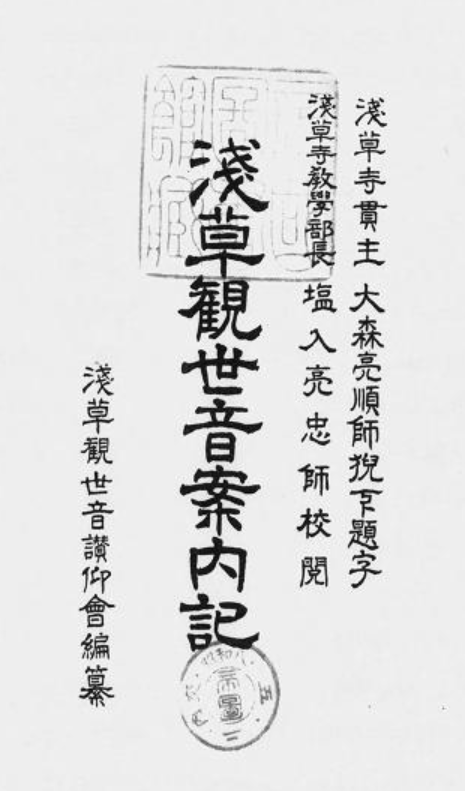 淺草寺貫主 大森亮順師猊下題字
淺草寺教學部長 塩入亮忠師校閲
淺草觀世音案内記
淺草觀世音讃仰會編纂